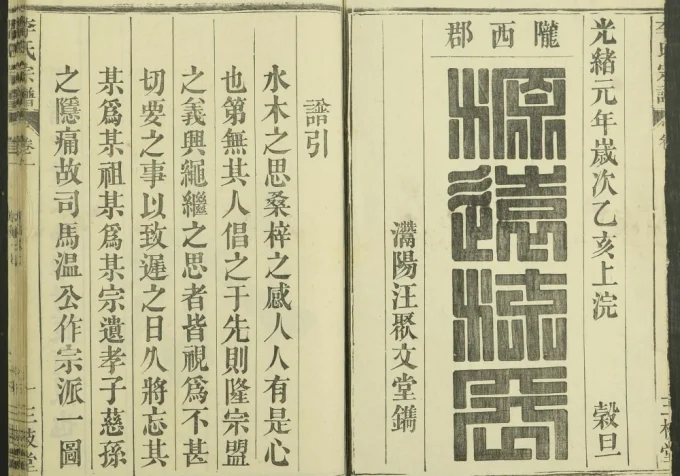 光緒元年歲次乙亥上浣 穀旦
隴西郡
源遠流長
灊陽汪聚文堂鐫
譜引
水木之思桑梓之感人人有是心
也第無其人倡之于先則隆宗盟
之義興繩繼之思者皆視爲不甚
切要之事以致遲之日久將忘其
某爲某祖某爲某宗遺孝子慈孫
之隱痛故司馬温公作宗派一圖
李氏宗譜 卷一 一 三枝堂